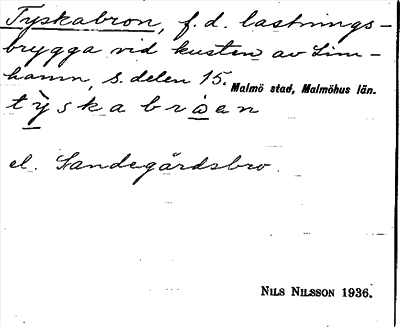 Tyskabron, f. d. lastnings-
brygga vid kusten av Lim-
hamn, s. delen 15. Malmö stad, Malmöhus län.
tỳskabròen
el. Sandegårdsbro
NILS NILSSON 1936.